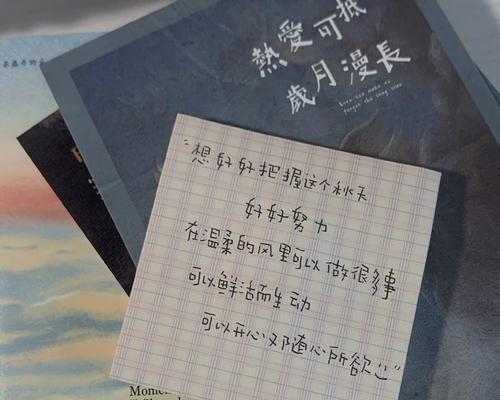 熱愛可抵
歲月漫長
Love can make us
forget the long time
“想好好把握这个秋天
好好努力
在温柔的风里可以做很多事
可以鲜活而生动
可以开心又随心所欲”
Momen